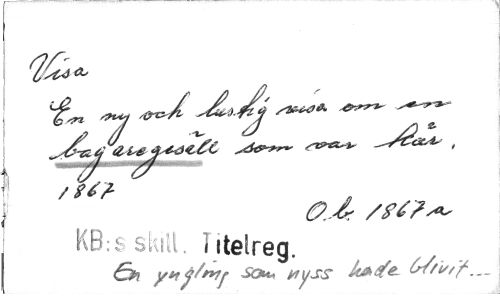 Visa
En ny och lustig visa om en
bagaregesäll som var kär.
1867
O.b. 1867 a
KB:s skill. Titelreg.
En yngling som nyss hade blivit...